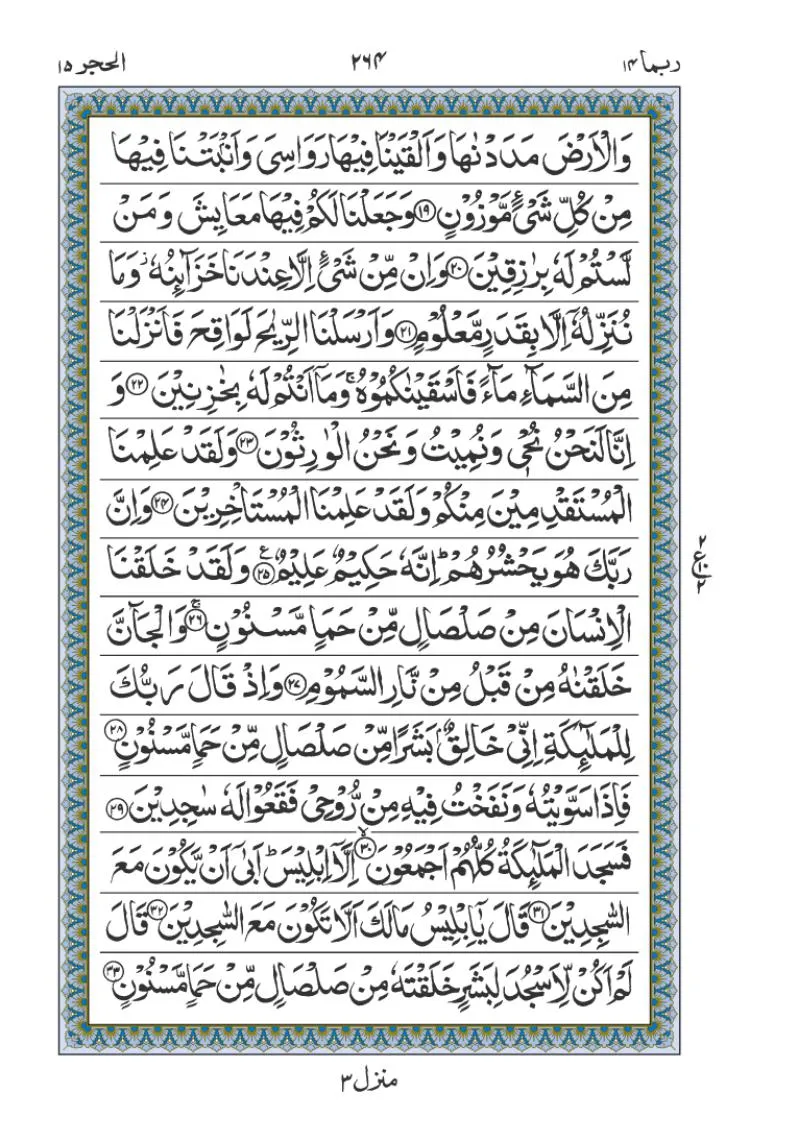 ربما ١٤
٢٦٤
الحجر ١٥
وَالْاَرْضَ مَدَدْنٰهَا وَاَلْقَيْنَا فِيْهَا رَوَاسِىَ وَاَنْۢبَتْنَا فِيْهَا
مِنْ كُلِّ شَىْءٍ مَّوْزُوْنٍ ١٩ وَجَعَلْنَا لَكُمْ فِيْهَا مَعَايِشَ وَمَنْ
لَّسْتُمْ لَهٗ بِرٰزِقِيْنَ ٢٠ وَاِنْ مِّنْ شَىْءٍ اِلَّا عِنْدَنَا خَزَآئِنُهٗ ز وَمَا
نُنَزِّلُهٗٓ اِلَّا بِقَدَرٍ مَّعْلُوْمٍ ٢١ وَاَرْسَلْنَا الرِّيٰحَ لَوَاقِحَ فَاَنْزَلْنَا
مِنَ السَّمَآءِ مَآءً فَاَسْقَيْنٰكُمُوْهُ ۚ وَمَآ اَنْتُمْ لَهٗ بِخٰزِنِيْنَ ٢٢ وَ
اِنَّا لَنَحْنُ نُحْىٖ وَنُمِيْتُ وَنَحْنُ الْوٰرِثُوْنَ ٢٣ وَلَقَدْ عَلِمْنَا
الْمُسْتَقْدِمِيْنَ مِنْكُمْ وَلَقَدْ عَلِمْنَا الْمُسْتَاْخِرِيْنَ ٢٤ وَاِنَّ
رَبَّكَ هُوَ يَحْشُرُهُمْ ؕ اِنَّهٗ حَكِيْمٌ عَلِيْمٌ ٢٥ ع وَلَقَدْ خَلَقْنَا
الْاِنْسَانَ مِنْ صَلْصَالٍ مِّنْ حَمَاٍ مَّسْنُوْنٍ ۚ ٢٦ وَالْجَآنَّ
خَلَقْنٰهُ مِنْ قَبْلُ مِنْ نَّارِ السَّمُوْمِ ٢٧ وَاِذْ قَالَ رَبُّكَ
لِلْمَلٰٓئِكَةِ اِنِّىْ خَالِقٌۢ بَشَرًا مِّنْ صَلْصَالٍ مِّنْ حَمَاٍ مَّسْنُوْنٍ ٢٨
فَاِذَا سَوَّيْتُهٗ وَنَفَخْتُ فِيْهِ مِنْ رُّوْحِىْ فَقَعُوْا لَهٗ سٰجِدِيْنَ ٢٩
فَسَجَدَ الْمَلٰٓئِكَةُ كُلُّهُمْ اَجْمَعُوْنَ ۙ ٣٠ اِلَّآ اِبْلِيْسَ ؕ اَبٰٓى اَنْ يَّكُوْنَ مَعَ
السّٰجِدِيْنَ ٣١ قَالَ يٰٓاِبْلِيْسُ مَا لَكَ اَلَّا تَكُوْنَ مَعَ السّٰجِدِيْنَ ٣٢ قَالَ
لَمْ اَكُنْ لِّاَسْجُدَ لِبَشَرٍ خَلَقْتَهٗ مِنْ صَلْصَالٍ مِّنْ حَمَاٍ مَّسْنُوْنٍ ٣٣
٢
ع ١٠
٢
منزل ٣